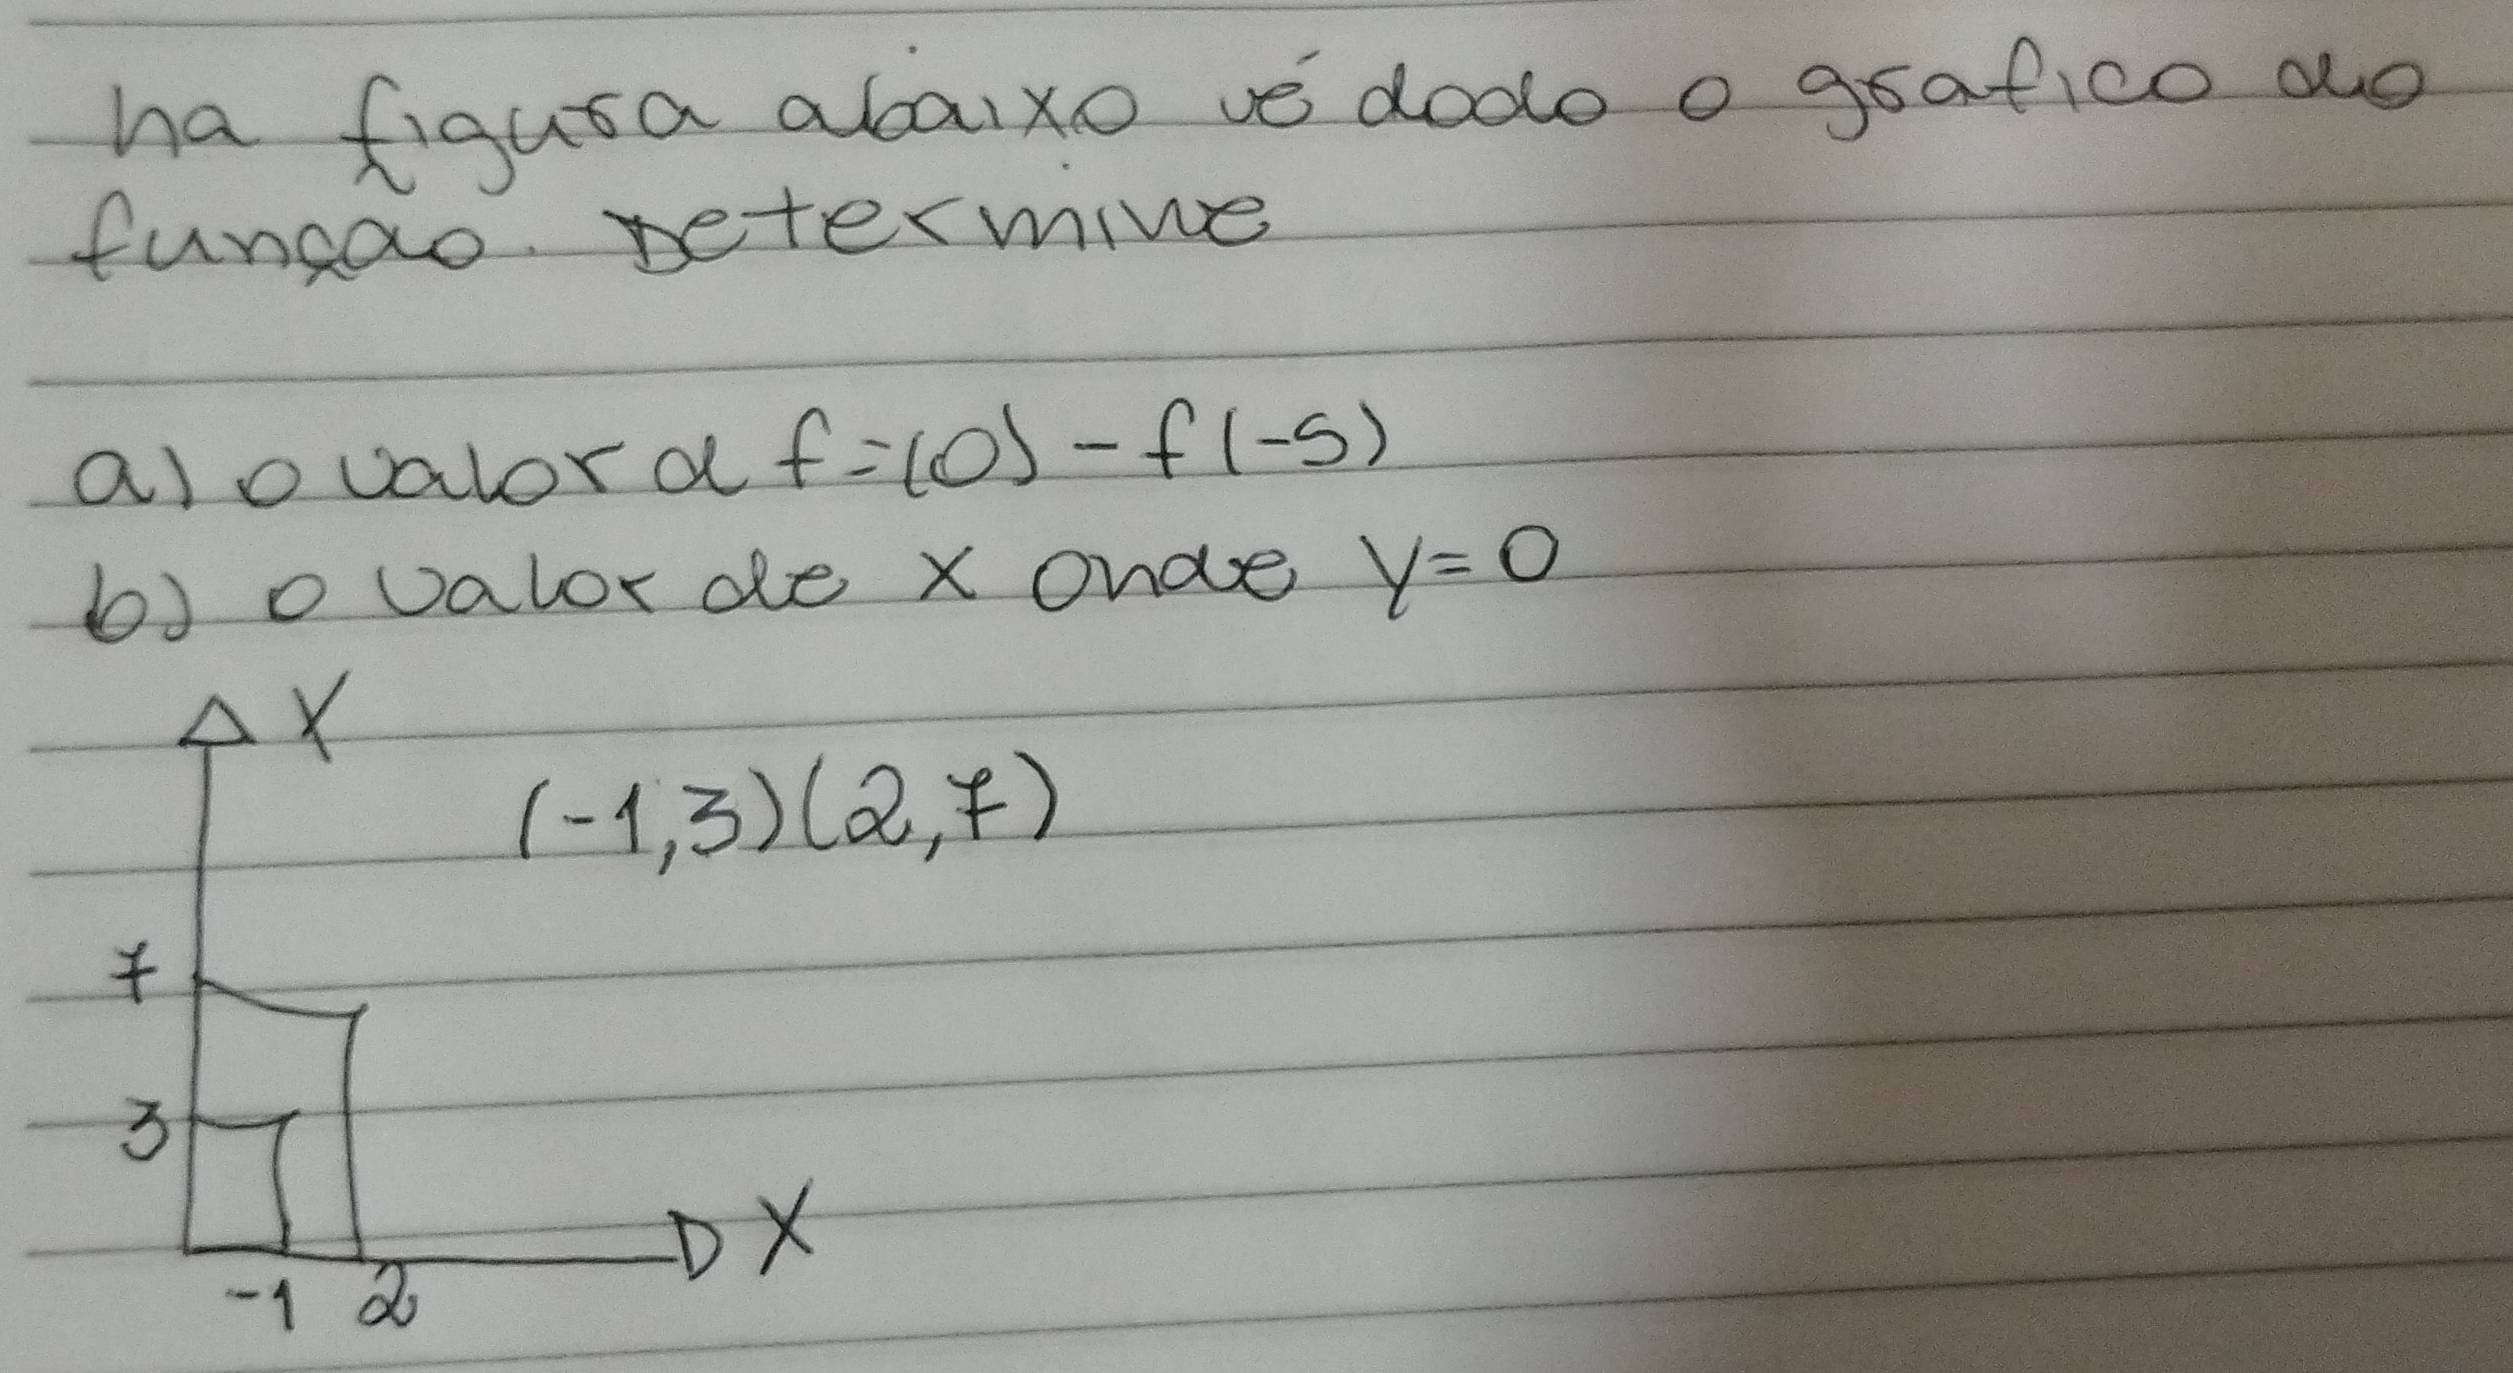 na figura abaixo vé dado o grafico do
função. Determine
a) o valor d f=(0) - f(-5)
b) o valor de x onde y=0
X
(-1,3)(2,7)
7
3
X
-1 2